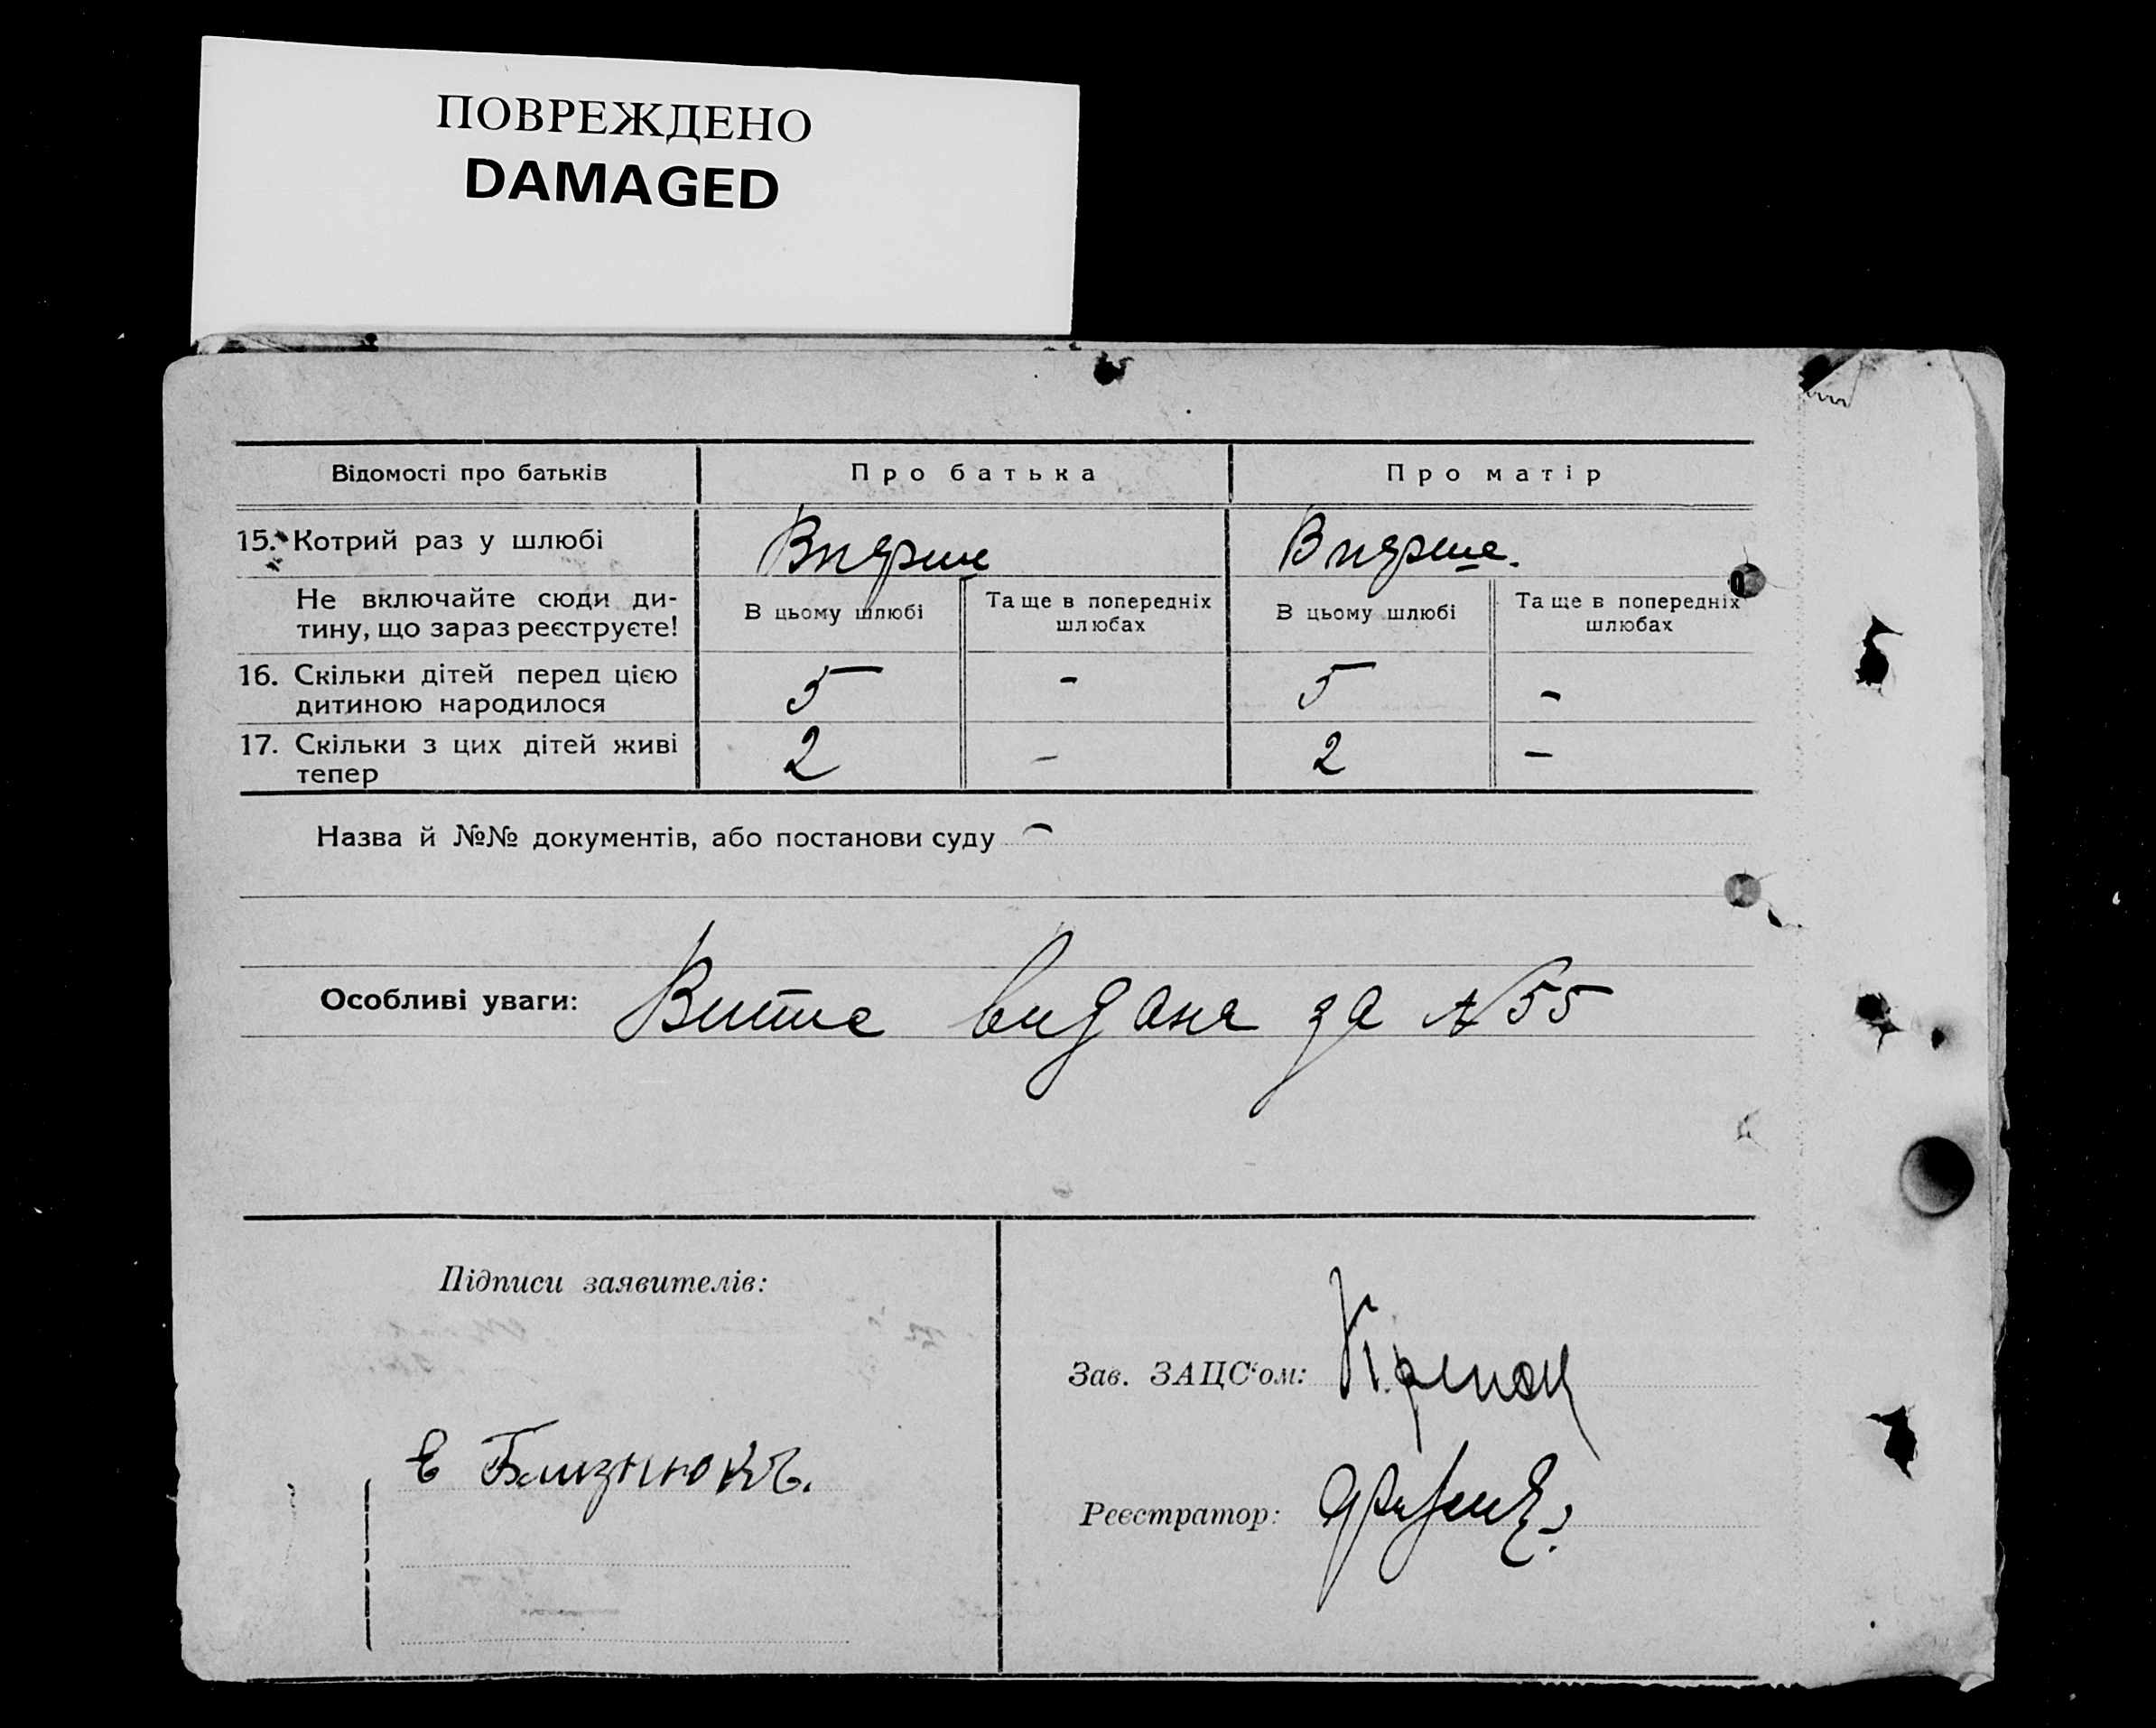 ПОВРЕЖДЕНО
DAMAGED
Відомості про батьків Про батька Про матір
15. Котрий раз у шлюбі Вперше Вперше.
Не включайте сюди ди-
тину, що зараз реєструєте!
В цьому шлюбі Та ще в попередніх шлюбах В цьому шлюбі Та ще в попередніх шлюбах
16. Скільки дітей перед цією
дитиною народилося 5 - 5 -
17. Скільки з цих дітей живі
тепер 2 - 2 -
Назва й №№ документів, або постанови суду -
Особливі уваги: видана за №55
Підписи заявителів:
Зав. ЗАЦС‘ом:
Є Близнюкъ.
Реєстратор: